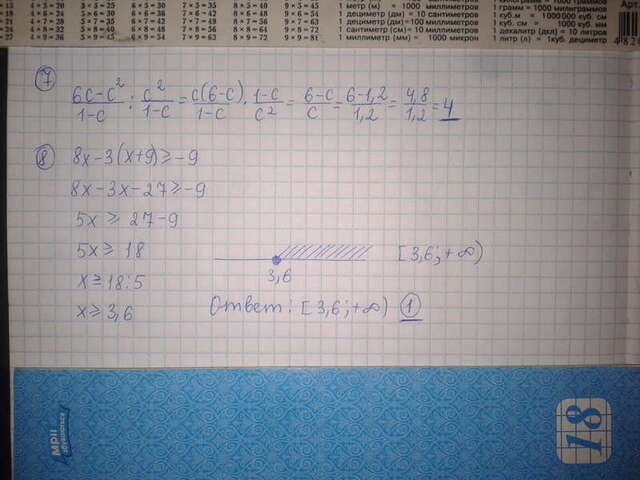 4×5=20 3×5=25 6×5=30 7×5=35 8×5=40 9×5=45 1 метр (м) = 1000 миллиметров
4×6=24 5×6=30 6×6=36 7×6=42 8×6=48 9×6=54 1 дециметр (дм) = 10 сантиметров 1 грамм = 1000 миллиграмов
4×7=28 5×7=35 6×7=42 7×7=49 8×7=56 9×7=63 1 дециметр (дм) = 100 миллиметров 1 куб.м = 1000 000 куб. см
4×8=32 5×8=40 6×8=48 7×8=56 8×8=64 9×8=72 1 сантиметр (см) = 10 миллиметров 1 куб.см = 1000 куб. мм
5×9=45 6×9=54 7×9=63 8×9=72 9×9=81 1 миллиметр (мм) = 1000 микрон 1 декалитр (дкл) = 10 литров
1 литр (л) = 1куб. дециметр
Арт
7
6c-c²/1-c : c²/1-c = c(6-c)/1-c · 1-c/c² = 6-c/c = 6-1,2/1,2 = 4,8/1,2 = 4
8 8x-3(x+9)≥-9
8x-3x-27≥-9
5x≥ 27-9
5x≥ 18 [3,6;+∞)
x≥18:5 3,6
x≥3,6 Ответ: [3,6;+∞) 1
Мрії збуваються
18